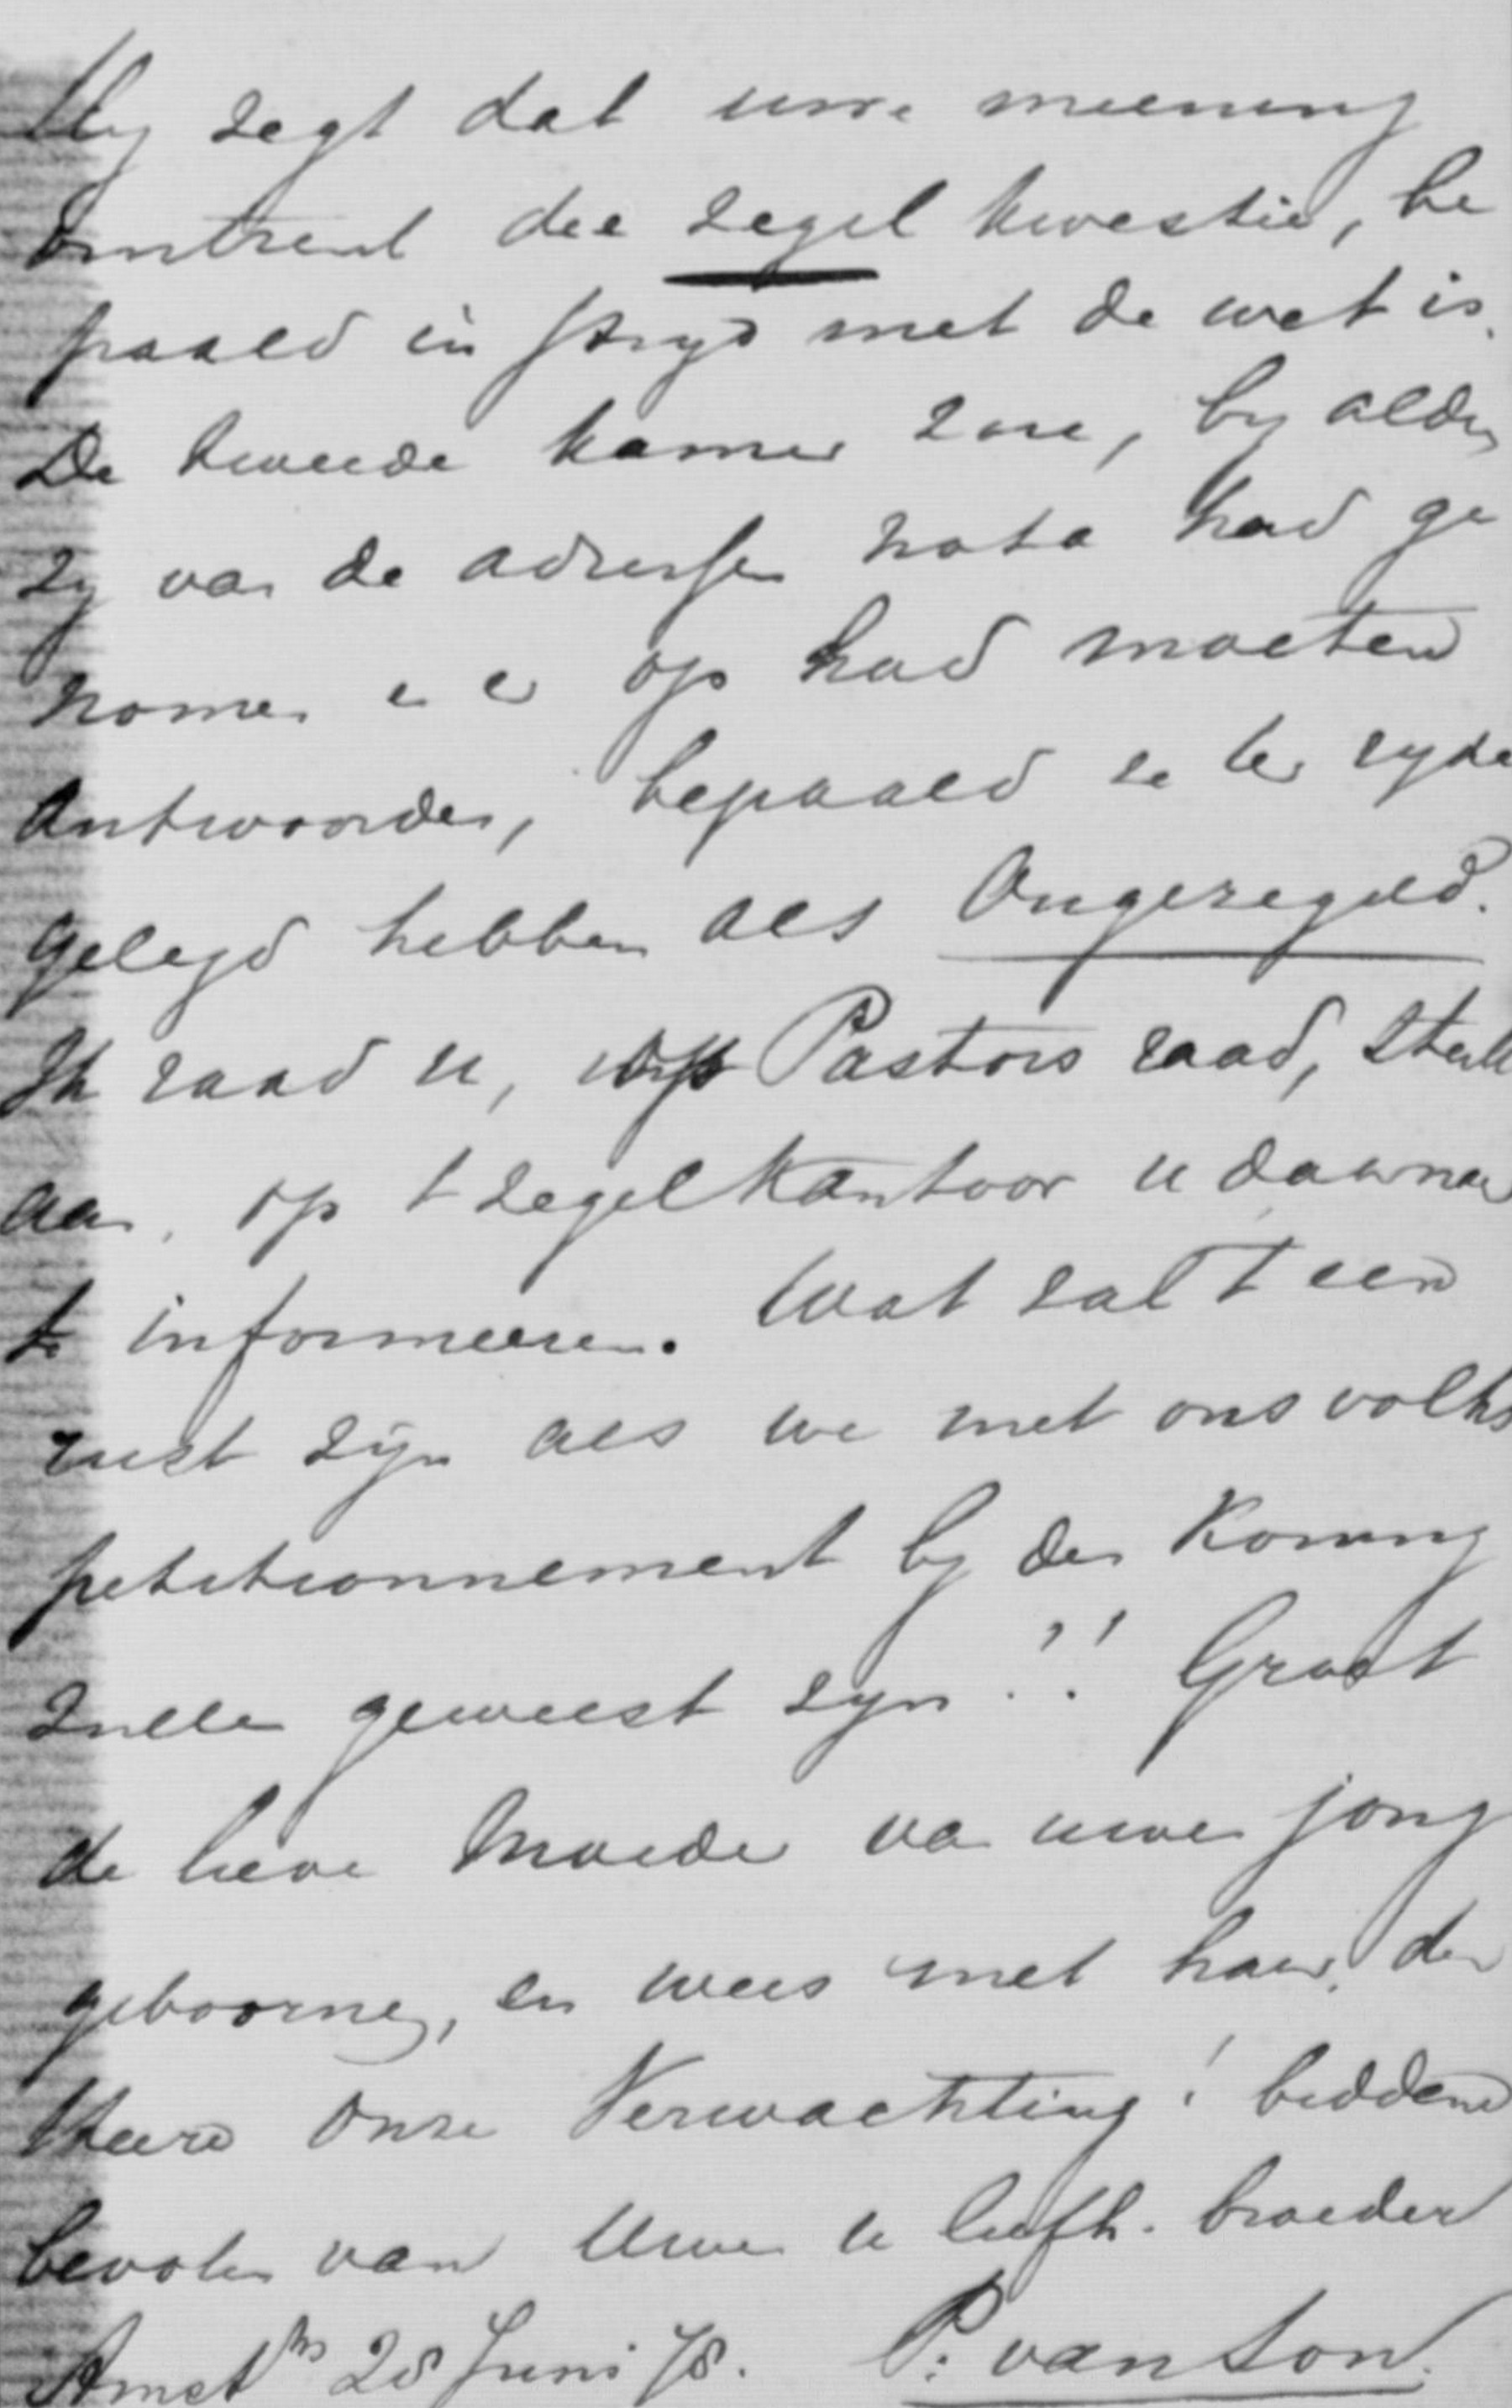 Hij zegt dat uwe meening
omtrent die zegel kwestie, be
paald in strijd met de wet is.
De tweede kamer zou, bij aldien
zij van de adressen nota had ge
nomen en er op had moeten
antwoorden, bepaald ze ter zyde
gelegd hebben als Ongezegeld.
Ik raad u, op Pastors raad, sterk
aan, op t zegelkantoor u daarna
te informeeren. Wat zal t een
rust zijn als we met ons volks
petitionnement bij den Koning
zullen geweest zijn!! Groet
de lieve Moeder van uwen jong
geboorne, en wees met haar, den
Heere onze Verwachting! biddend
bevolen van Uwen u liefh. broeder
Amstm 28 Juni 78. P. van Son.